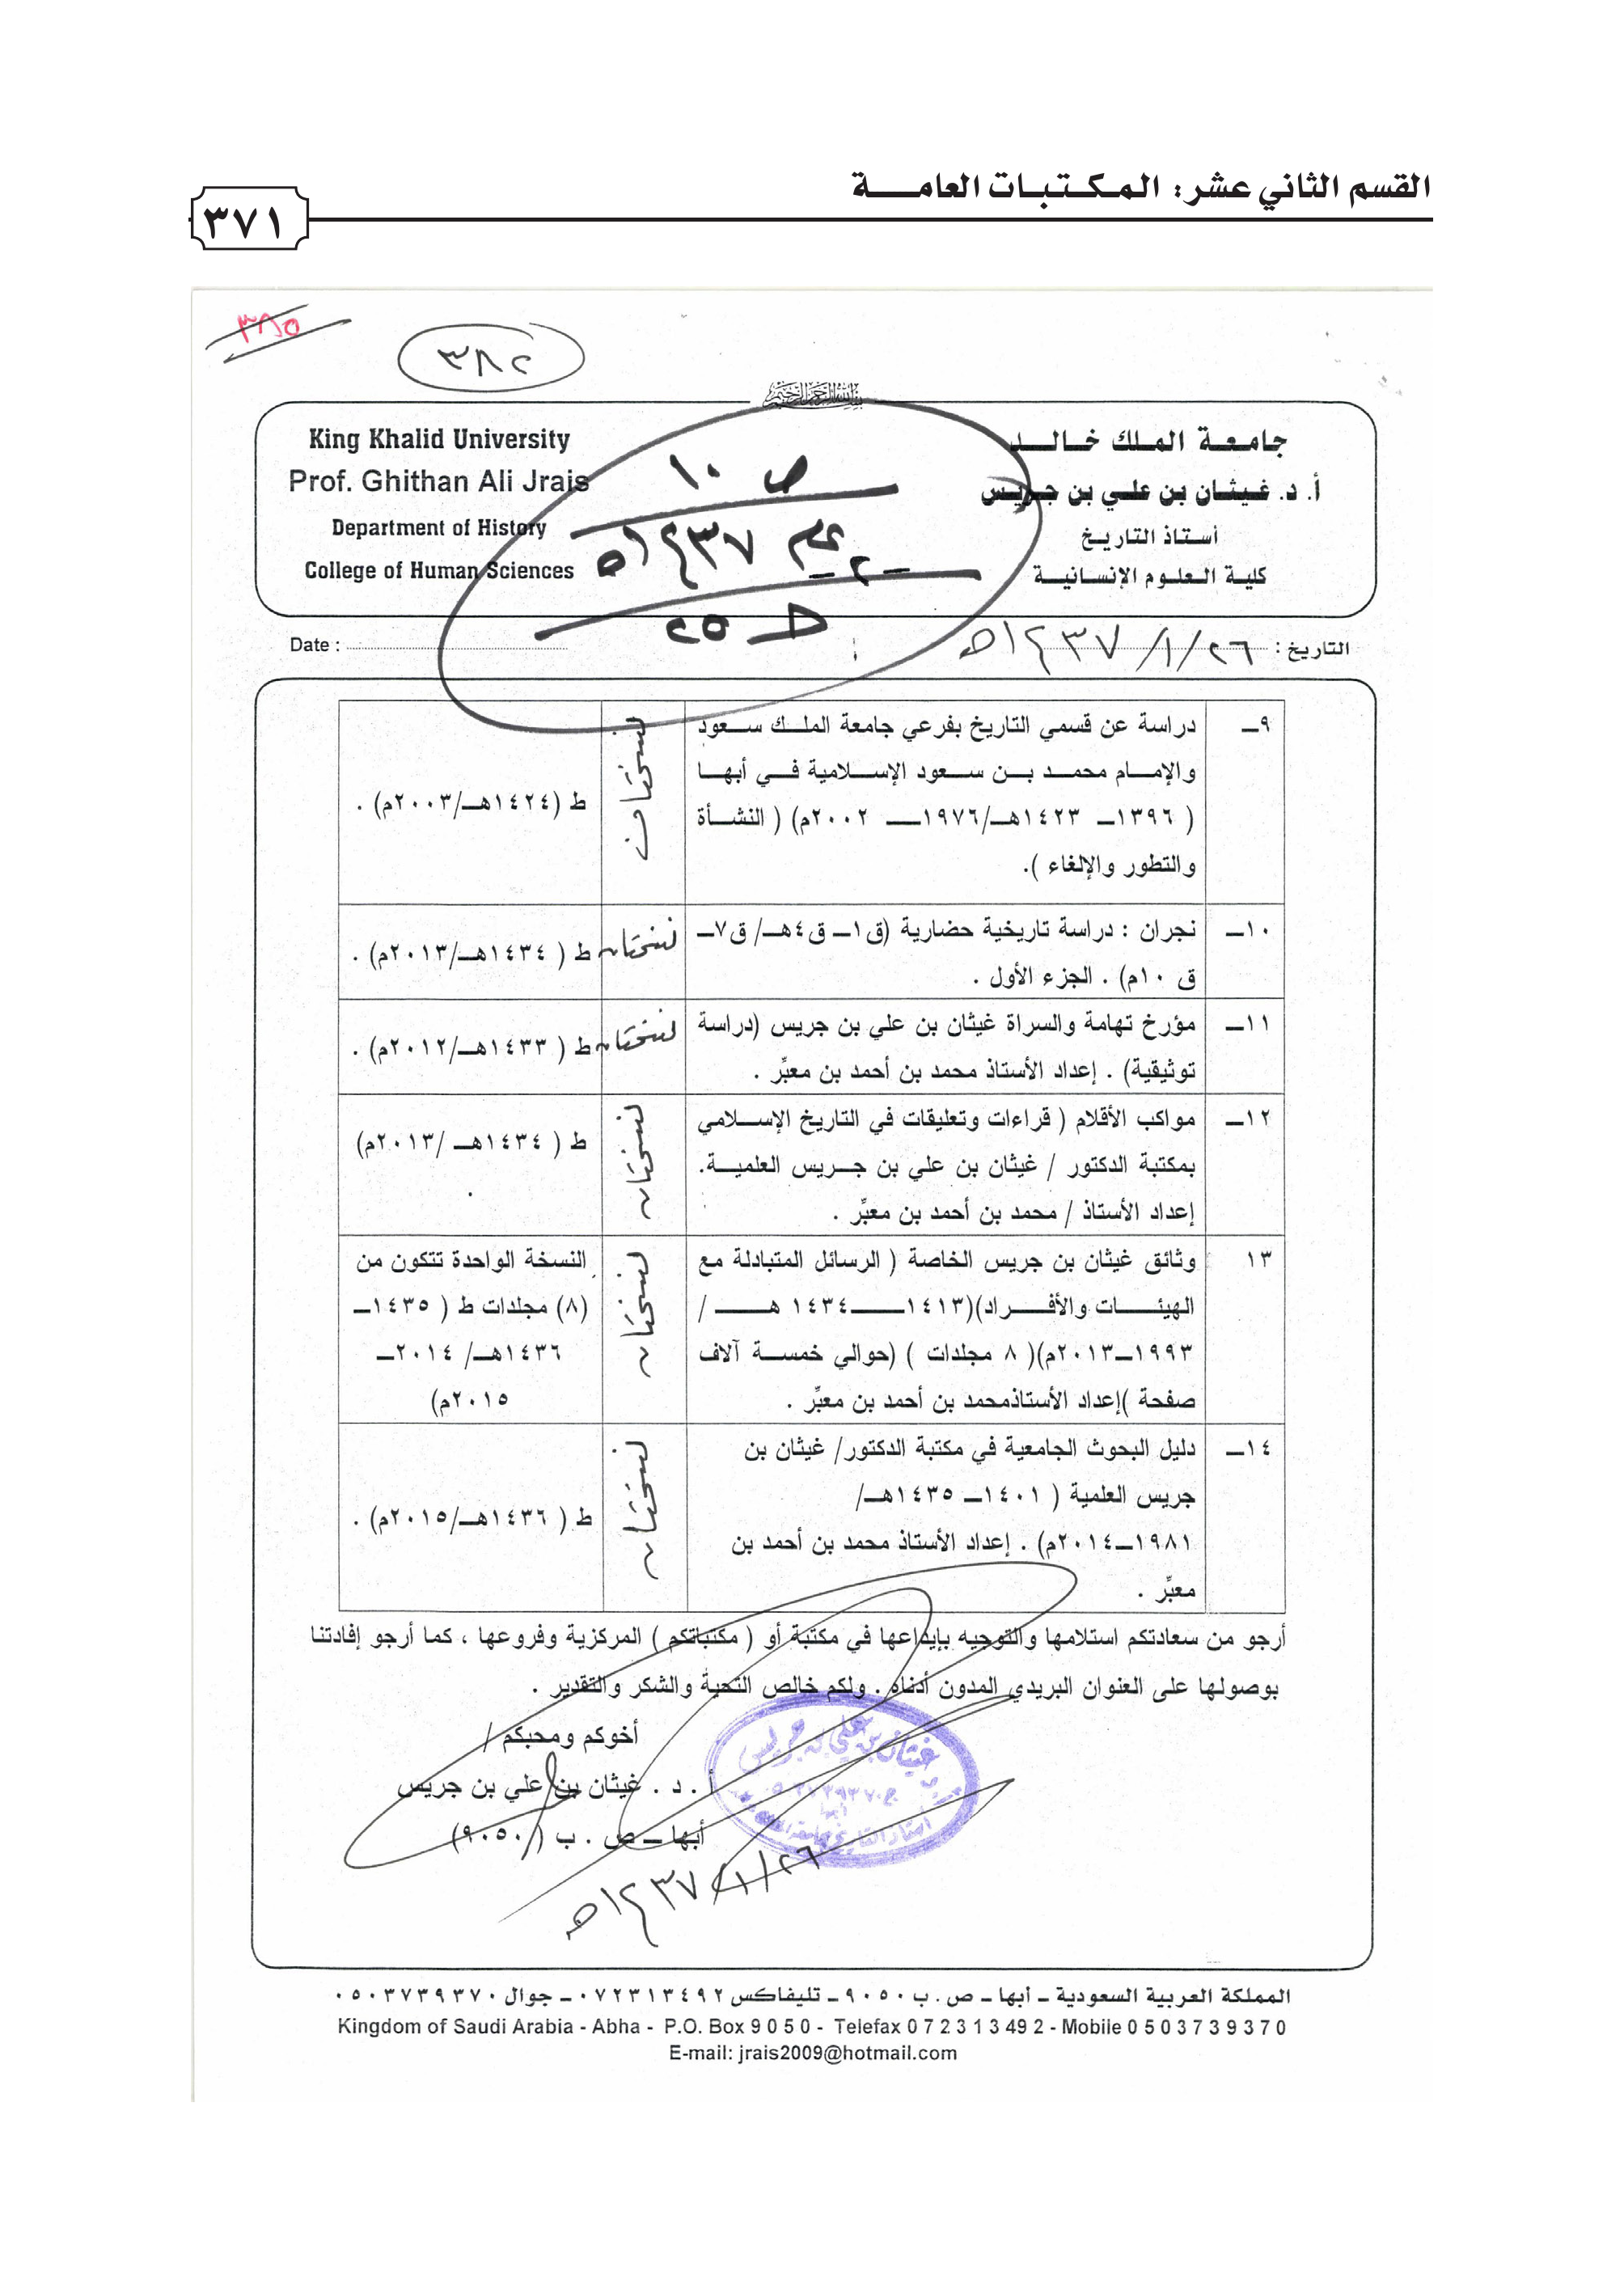 القسم الثاني عشر: المكتبات العامة
٣٧١
٣٨٥
٣٨٢
بسم الله الرحمن الرحيم
جامعة الملك خالد
أ. د. غيثان بن علي بن جريس
أستاذ التاريخ
كلية العلوم الإنسانية
King Khalid University
Prof. Ghithan Ali Jrais
Department of History
College of Human Sciences
ص ١٠
١٤٣٧هـ
التاريخ : ٢٦/١/١٤٣٧هـ
Date :
٩ـ دراسة عن قسمي التاريخ بفرعي جامعة الملك سعود
والإمام محمد بن سعود الإسلامية في أبها
( ١٣٩٦ـ ١٤٢٣هـ/١٩٧٦ـ ٢٠٠٢م) ( النشأة
والتطور والإلغاء ).
نسختان
ط (١٤٢٤هـ/٢٠٠٣م) .
١٠ـ نجران : دراسة تاريخية حضارية (ق١ـ ق٤هـ/ ق٧ـ
ق ١٠م) . الجزء الأول .
نسختان
ط ( ١٤٣٤هـ/٢٠١٣م) .
١١ـ مؤرخ تهامة والسراة غيثان بن علي بن جريس (دراسة
توثيقية) . إعداد الأستاذ محمد بن أحمد بن معبِّر .
نسختان
ط ( ١٤٣٣هـ/٢٠١٢م) .
١٢ـ مواكب الأقلام ( قراءات وتعليقات في التاريخ الإسلامي
بمكتبة الدكتور / غيثان بن علي بن جريس العلمية.
إعداد الأستاذ / محمد بن أحمد بن معبِّر .
نسختان
ط ( ١٤٣٤هـ /٢٠١٣م)
.
١٣ وثائق غيثان بن جريس الخاصة ( الرسائل المتبادلة مع
الهيئات والأفراد)(١٤١٣ـ١٤٣٤ هـ /
١٩٩٣ـ٢٠١٣م)( ٨ مجلدات ) (حوالي خمسة آلاف
صفحة )إعداد الأستاذمحمد بن أحمد بن معبِّر .
نسختان
النسخة الواحدة تتكون من
(٨) مجلدات ط ( ١٤٣٥ـ
١٤٣٦هـ/ ٢٠١٤ـ
٢٠١٥م)
١٤ـ دليل البحوث الجامعية في مكتبة الدكتور/ غيثان بن
جريس العلمية ( ١٤٠١ـ ١٤٣٥هـ/
١٩٨١ـ٢٠١٤م) . إعداد الأستاذ محمد بن أحمد بن
معبِّر .
نسختان
ط ( ١٤٣٦هـ/٢٠١٥م) .
أرجو من سعادتكم استلامها والتوجيه بإيداعها في مكتبة أو ( مكتباتكم ) المركزية وفروعها ، كما أرجو إفادتنا
بوصولها على العنوان البريدي المدون أدناه . ولكم خالص التحية والشكر والتقدير .
أخوكم ومحبكم /
أ . د . غيثان بن علي بن جريس
أبها ـ ص . ب (٩٠٥٠)
٢٦/١/١٤٣٧هـ
غيثان بن علي بن جريس
المملكة العربية السعودية ـ أبها ـ ص . ب ٩٠٥٠ ـ تليفاكس ٠٧٢٣١٣٤٩٢ ـ جوال ٠٥٠٣٧٣٩٣٧٠
Kingdom of Saudi Arabia - Abha - P.O. Box 9 0 5 0 - Telefax 0 7 2 3 1 3 49 2 - Mobile 0 5 0 3 7 3 9 3 7 0
E-mail: jrais2009@hotmail.com